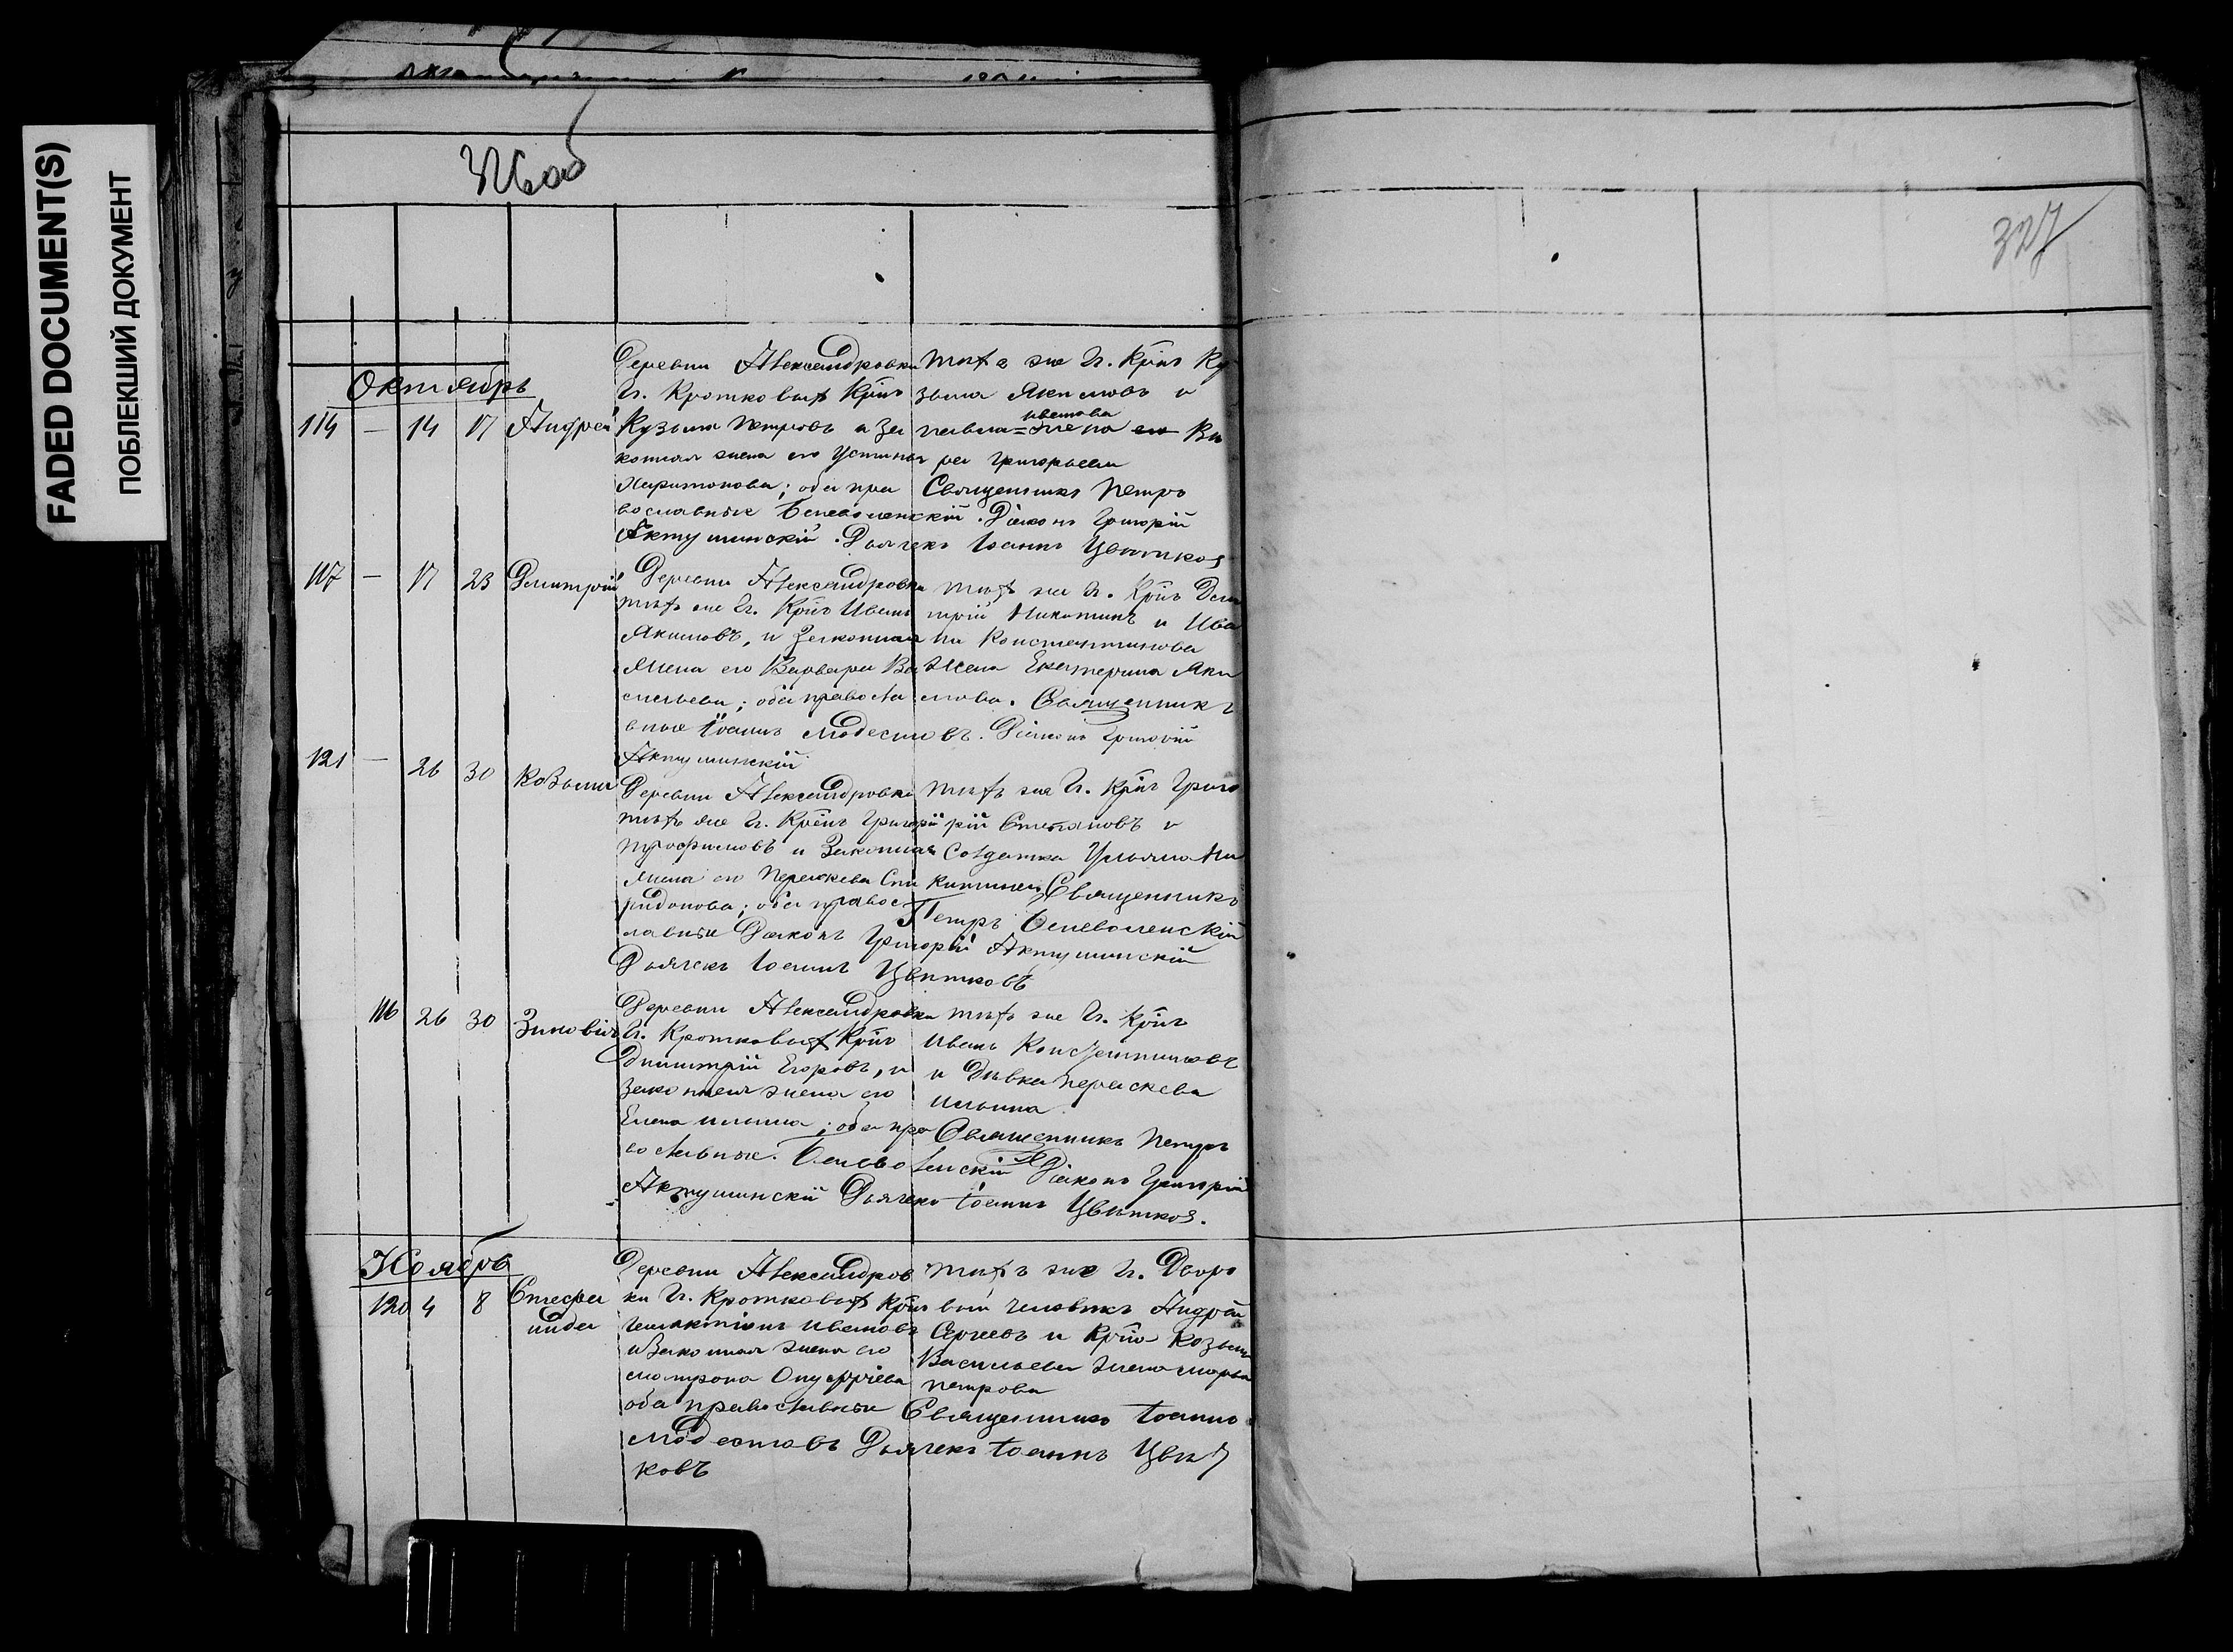 FADED DOCUMENT(S)
ПОБЛЕКШИЙ ДОКУМЕНТ
326об
327
Октябрь
114 – 14 17 Андрей
Деревни Александровки
Г. Кротковыхъ Крнъ
Кузьма Петровъ и за
конная жена его Устинья
Харитонова; оба пра
вославные
тѣхъ же Г. Крнъ Ку
зьма Якимовъ и
иванова
жена его Ва
ра Григорьева
Священникъ Петръ
Беневоленскій. Діаконъ Григорій
Актушинскій. Дьячекъ Іоаннъ Цвѣтковъ
117 – 17 23 Димитрій
Деревни Александровки
тѣхъ же Г. Крнъ Иванъ
Якимовъ, и Законная
Жена его Варвара Ва
сильева; оба правосла
вные
тѣхъ же Г. Крнъ Дми
трій Никитинъ и Ива
на Константинова
Жена Екатерина Яки
мова. Священникъ
Іоаннъ Модестовъ. Діаконъ Григорій
Актушинскій
121 – 26 30 Козьма
Деревни Александровки
тѣхъ же Г. Крнъ Григорій
Трофимовъ и Законная
Жена его Параскева Спи
ридонова; оба правос
лавные
тѣхъ же Г. Крнъ Григо
рій Степановъ и
Солдатка Ульяна Ни
китина Священникъ
Петръ Беневоленскій
Діаконъ Григорій Актушинскій
Дьячекъ Іоаннъ Цвѣтковъ
116 26 30 Зиновія
Деревни Александровки
Г. Кротковыхъ Крнъ
Димитрій Егоровъ, и
законная жена его
Елена Ильина; оба пра
вославные.
тѣхъ же Г. Крнъ
Иванъ Константиновъ
и Дѣвка Параскева
Ильина
Священникъ Петръ
Беневоленскій Діаконъ Григорій
Актушинскій Дьячекъ Іоаннъ Цвѣтков.
Ноябрь
120 4 8 Стефа
нида
Деревни Александров
ки Г. Кротковыхъ Крнъ
Ивановъ
и Законная жена его
Матрона Онуфріева
оба православные
тѣхъ же Г. Дворо
вый человѣкъ Андрей
Сергеевъ и Крна Козьмы
Васильева жена Марья
Петрова
Священникъ Іоаннъ
Модестовъ Дьячекъ Іоаннъ Цвѣт
ковъ